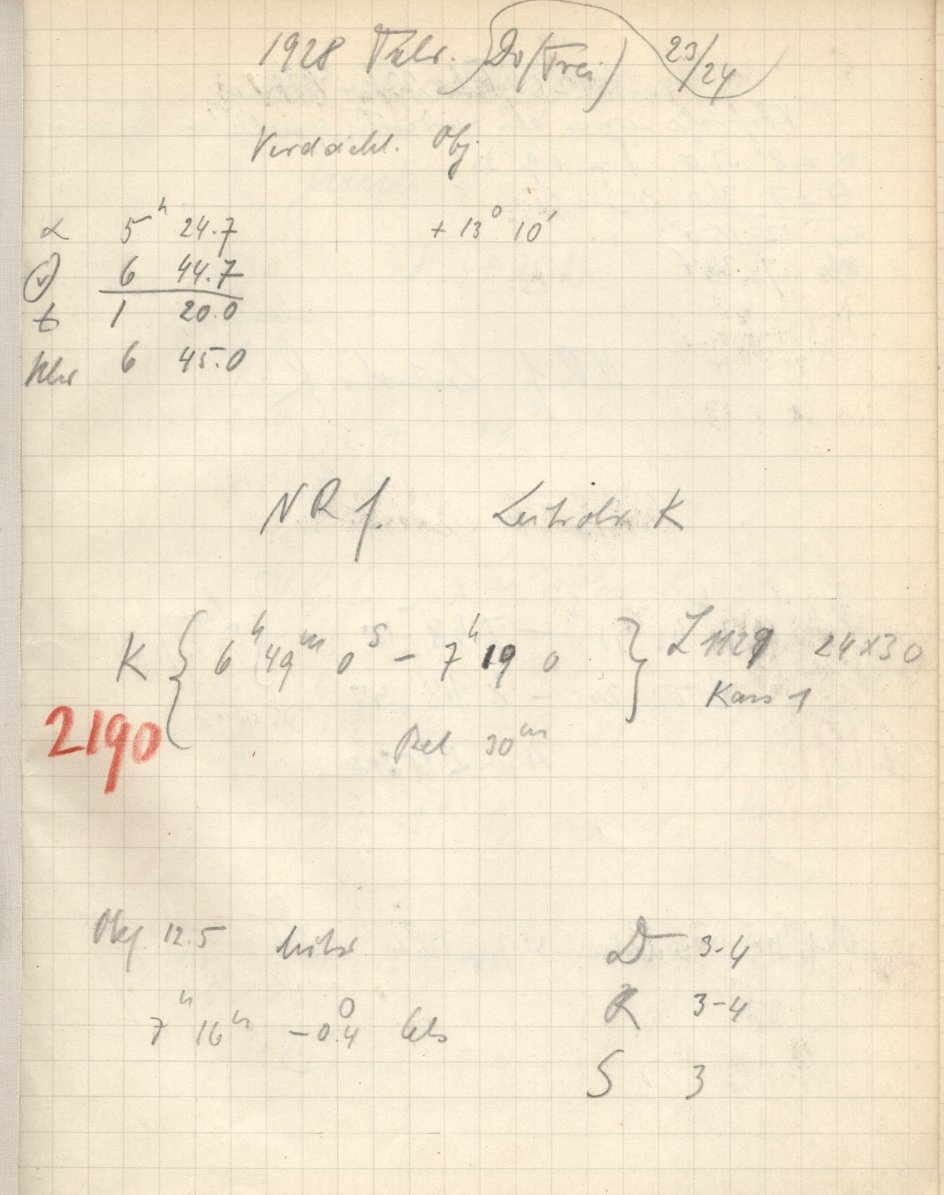 1928 Febr. Do/Frei 23/24
Verdächt. Obj.
α 5ʰ 24.7 + 13° 10'
6 44.7
t 1 20.0
Uhr 6 45.0
NR f. Leitrohr K
K { 6ʰ 49ᵐ 0ˢ – 7ʰ 19 0 } Z 1129 24x30
Kass 1
2190
Bel 30ᵐ
Obj 12.5
D 3-4
7ʰ 16ᵐ – 0.4° Cels
R 3-4
S 3